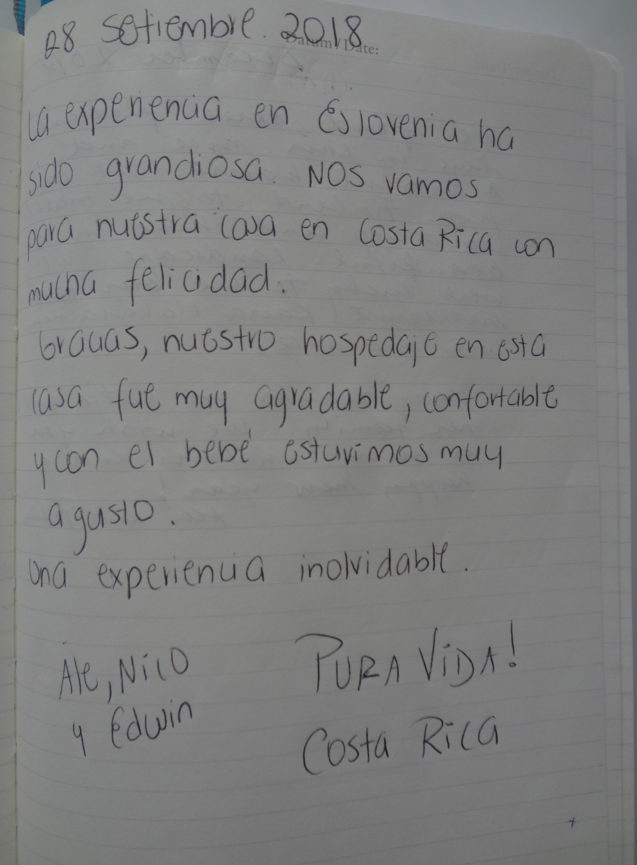 28 setiembre. 2018
Datum/Date:
La experiencia en Eslovenia ha
sido grandiosa. Nos vamos
para nuestra casa en Costa Rica con
mucha felicidad.
Gracias, nuestro hospedaje en esta
casa fue muy agradable, confortable
y con el bebé estuvimos muy
a gusto.
Una experiencia inolvidable.
Ale, Nico
y Edwin
PURA VIDA!
Costa Rica